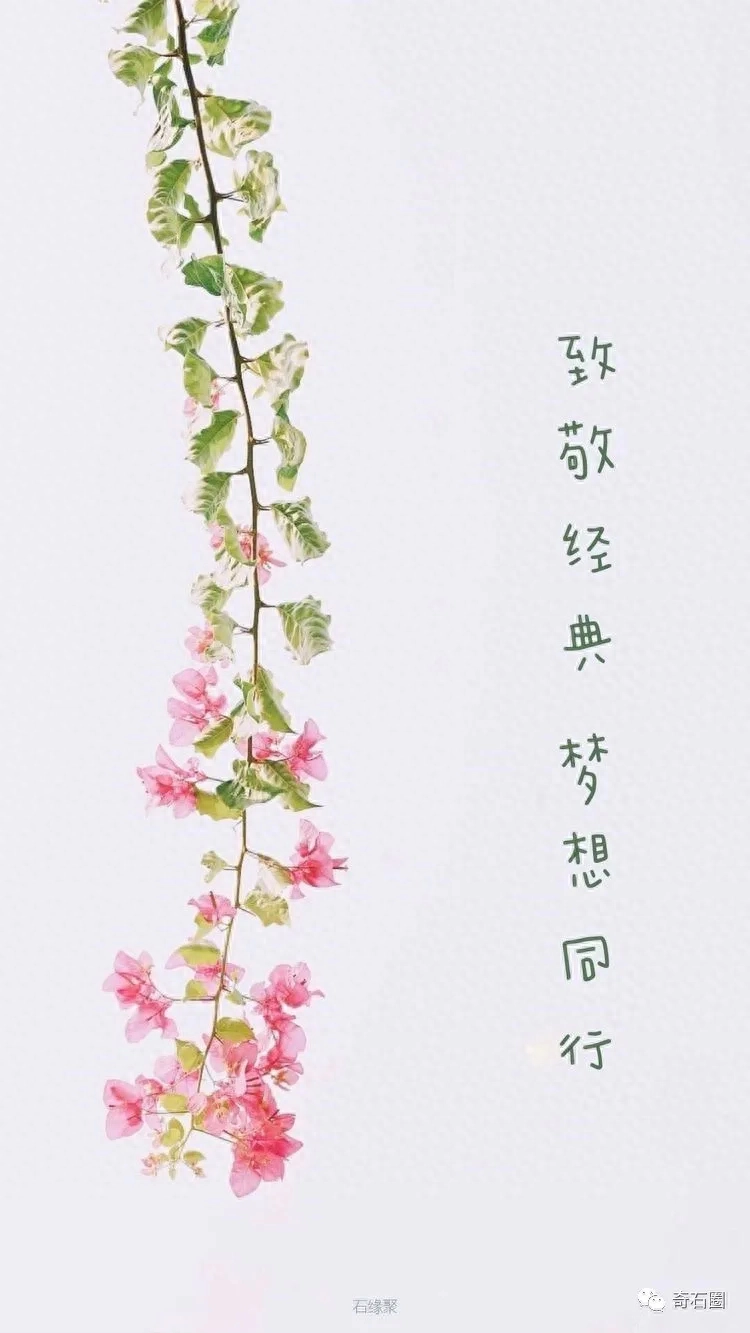 致敬经典 梦想同行
石缘聚
奇石圈